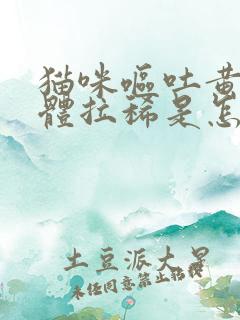 猫咪嘔吐黄
體拉稀是怎
土豆派大星
未任同意禁止轉授